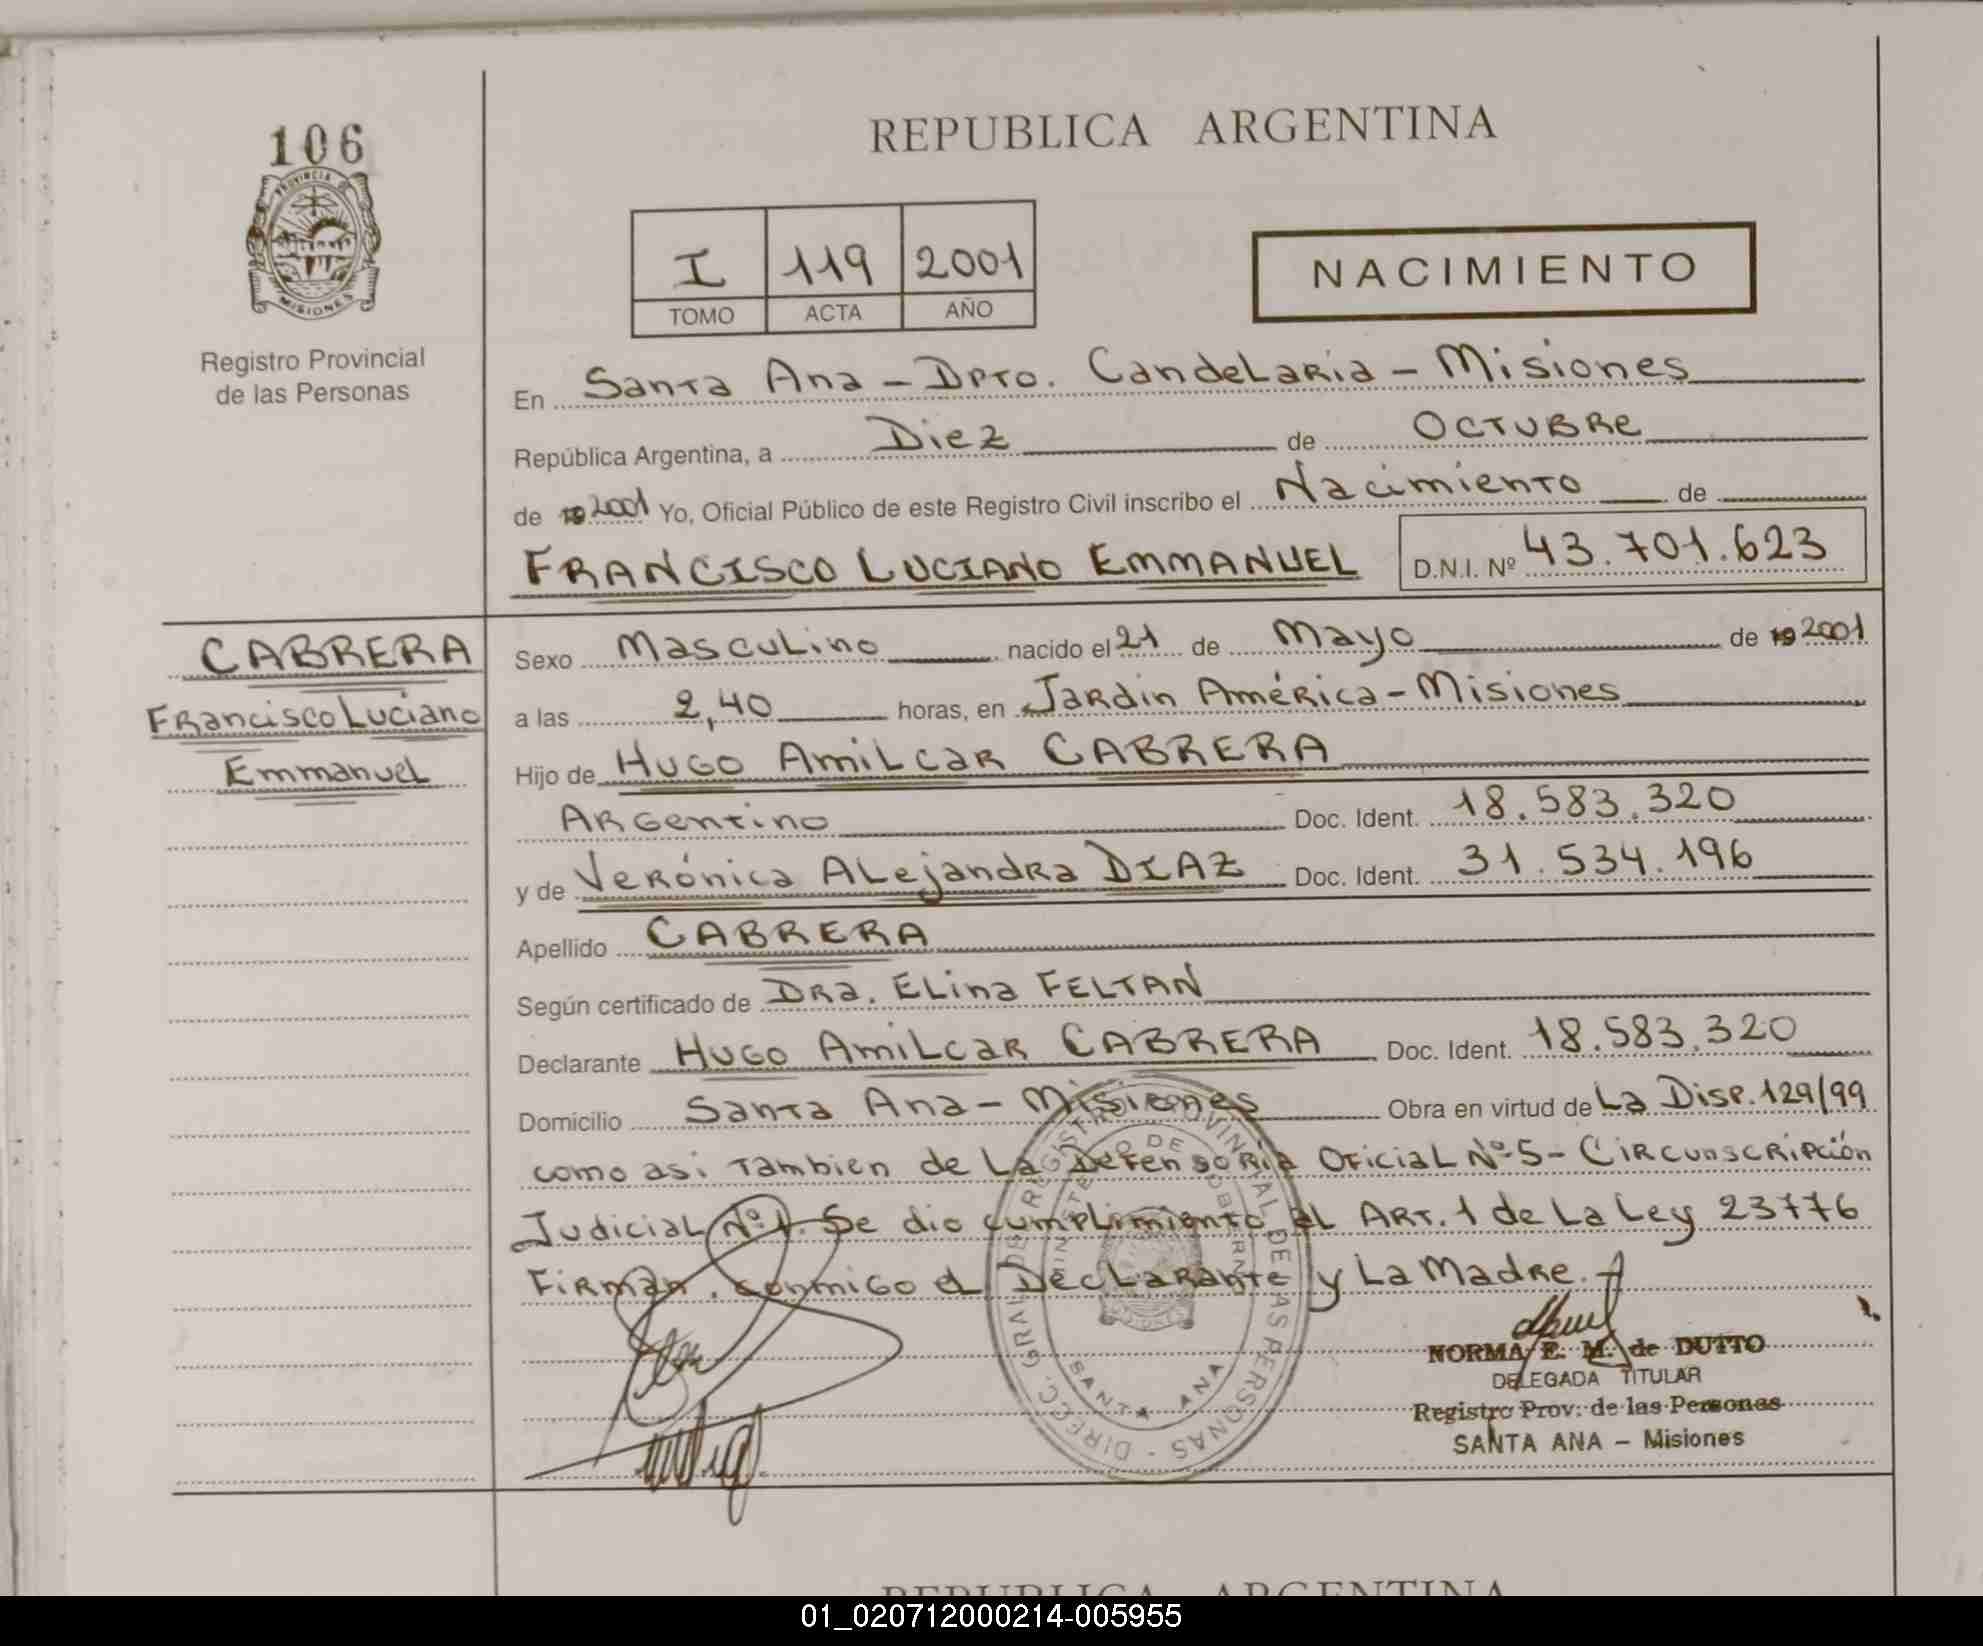 106
PROVINCIA DE
MISIONES
Registro Provincial
de las Personas
REPUBLICA ARGENTINA
I 119 2001
TOMO ACTA AÑO
NACIMIENTO
En Santa Ana - Dpto. Candelaria - Misiones
República Argentina, a Diez de Octubre
de 19 2001 Yo, Oficial Público de este Registro Civil inscribo el Nacimiento de
FRANCISCO LUCIANO EMMANUEL D.N.I. Nº 43.701.623
CABRERA
Francisco Luciano
Emmanuel
Sexo Masculino nacido el 21 de Mayo de 19 2001
a las 2,40 horas, en Jardin América - Misiones
Hijo de Hugo Amilcar CABRERA
Argentino Doc. Ident. 18.583.320
y de Verónica Alejandra DIAZ Doc. Ident. 31.534.196
Apellido CABRERA
Según certificado de Dra. Elina FELTAN
Declarante Hugo Amilcar CABRERA Doc. Ident. 18.583.320
Domicilio Santa Ana - Misiones Obra en virtud de La Disp. 129/99
como asi tambien de La Defensoria Oficial Nº 5 - Circunscripción
Judicial Nº 1. Se dio cumplimiento al Art. 1 de La Ley 23776
Firman conmigo el Declarante y La Madre.
DIRECC. GRAL. DE REGISTRO PROVINCIAL DE LAS PERSONAS
MINISTERIO DE GOBIERNO
SANTA ANA
NORMA E. M. de DUTTO
DELEGADA TITULAR
Registro Prov. de las Personas
SANTA ANA - Misiones
REPUBLICA ARGENTINA
01_020712000214-005955